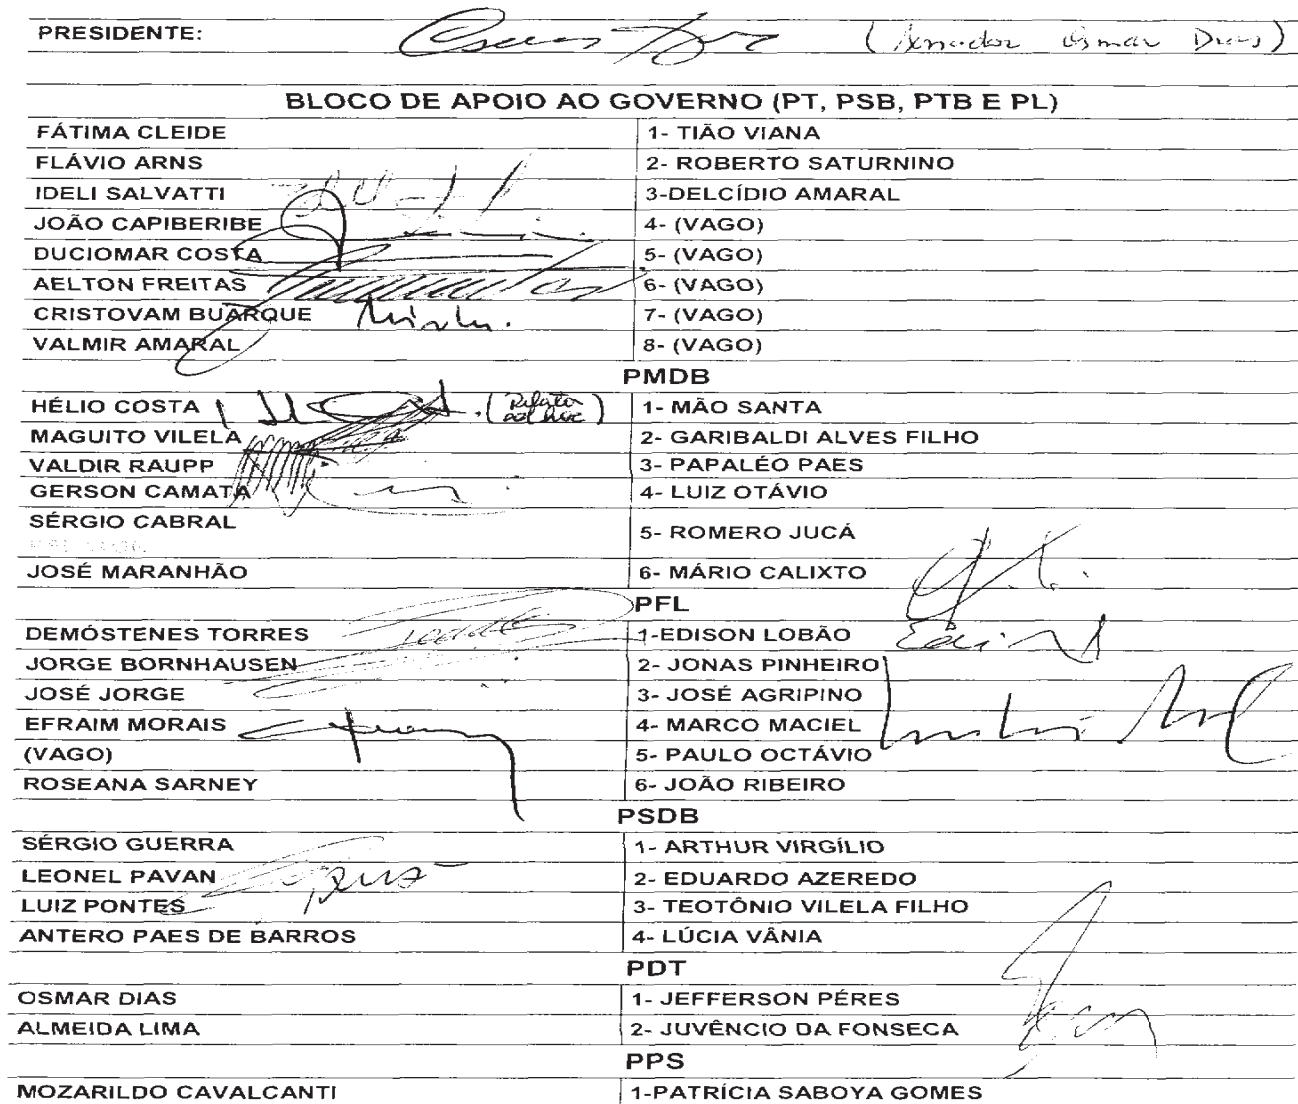 PRESIDENTE: (Senador Osmar Dias)
BLOCO DE APOIO AO GOVERNO (PT, PSB, PTB E PL)
FÁTIMA CLEIDE 1- TIÃO VIANA
FLÁVIO ARNS 2- ROBERTO SATURNINO
IDELI SALVATTI 3-DELCÍDIO AMARAL
JOÃO CAPIBERIBE 4- (VAGO)
DUCIOMAR COSTA 5- (VAGO)
AELTON FREITAS 6- (VAGO)
CRISTOVAM BUARQUE 7- (VAGO)
VALMIR AMARAL 8- (VAGO)
PMDB
HÉLIO COSTA (Relator ad hoc) 1- MÃO SANTA
MAGUITO VILELA 2- GARIBALDI ALVES FILHO
VALDIR RAUPP 3- PAPALÉO PAES
GERSON CAMATA 4- LUIZ OTÁVIO
SÉRGIO CABRAL 5- ROMERO JUCÁ
JOSÉ MARANHÃO 6- MÁRIO CALIXTO
PFL
DEMÓSTENES TORRES 1-EDISON LOBÃO
JORGE BORNHAUSEN 2- JONAS PINHEIRO
JOSÉ JORGE 3- JOSÉ AGRIPINO
EFRAIM MORAIS 4- MARCO MACIEL
(VAGO) 5- PAULO OCTÁVIO
ROSEANA SARNEY 6- JOÃO RIBEIRO
PSDB
SÉRGIO GUERRA 1- ARTHUR VIRGÍLIO
LEONEL PAVAN 2- EDUARDO AZEREDO
LUIZ PONTES 3- TEOTÔNIO VILELA FILHO
ANTERO PAES DE BARROS 4- LÚCIA VÂNIA
PDT
OSMAR DIAS 1- JEFFERSON PÉRES
ALMEIDA LIMA 2- JUVÊNCIO DA FONSECA
PPS
MOZARILDO CAVALCANTI 1-PATRÍCIA SABOYA GOMES